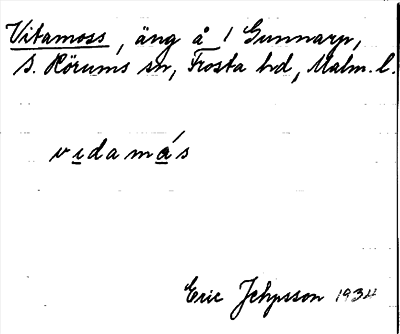 Vitamoss, äng å 1 Gunnarp,
S. Rörums sn, Frosta hd, Malm. l.
vidamás
Eric 1934